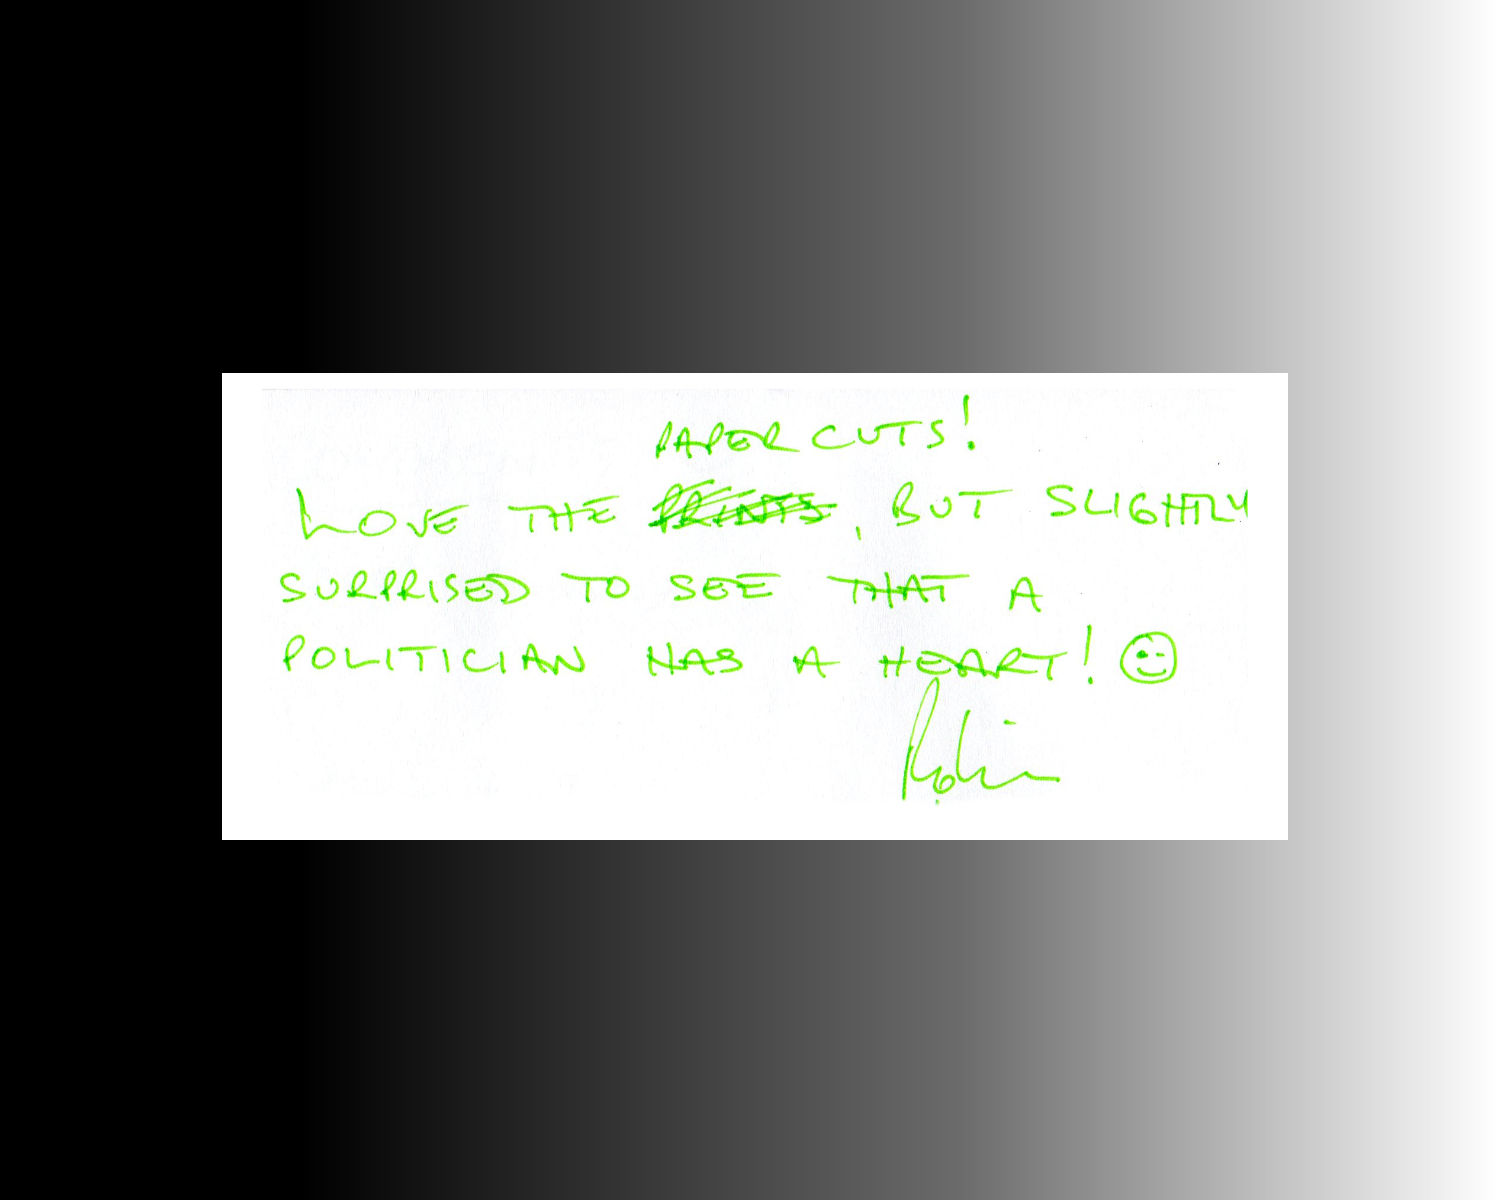 PAPER CUTS!
LOVE THE PRINTS, BUT SLIGHTLY
SURPRISED TO SEE THAT A
POLITICIAN HAS A HEART! 😉
Robin